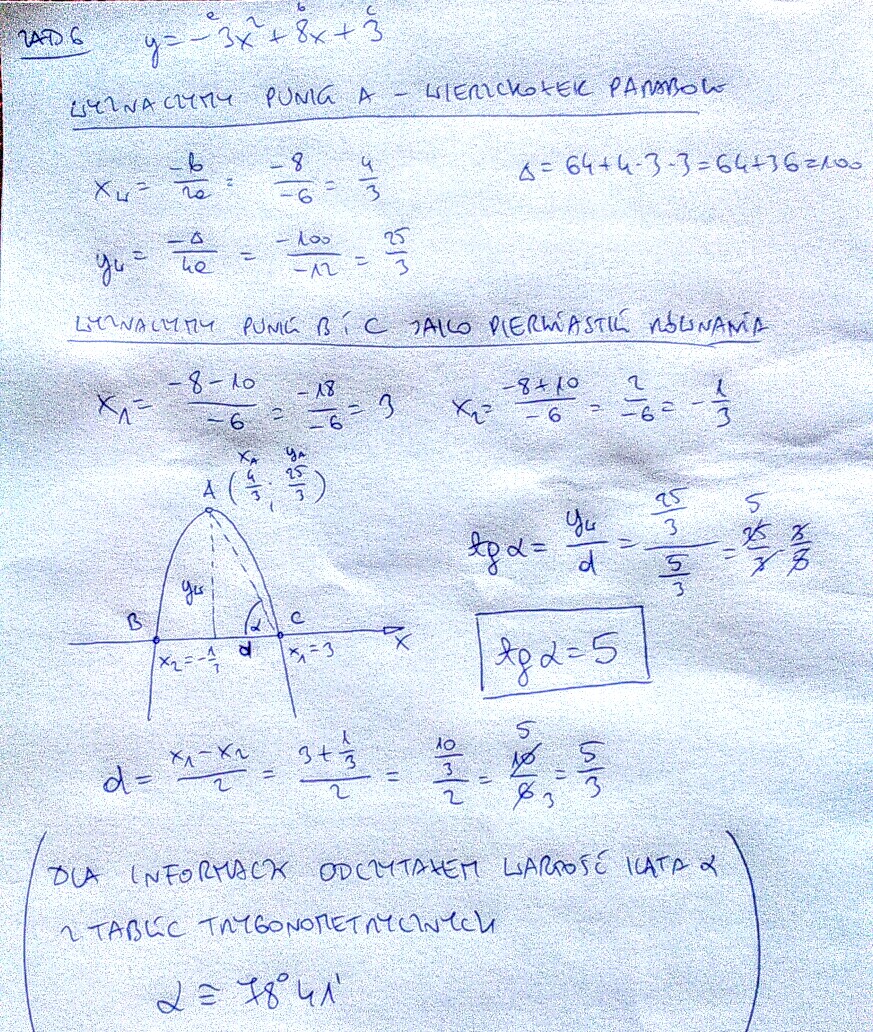 ZAD 6 y = -3x² + 8x + 3
a b c
WYZNACZYMY PUNKT A - WIERZCHOŁEK PARABOLI
x_w = -b/2a = -8/-6 = 4/3 Δ = 64+4·3·3 = 64+36 = 100
y_w = -Δ/4a = -100/-12 = 25/3
WYZNACZYMY PUNKT B i C JAKO PIERWIASTKI RÓWNANIA
x₁ = (-8-10)/-6 = -18/-6 = 3 x₂ = (-8+10)/-6 = 2/-6 = -1/3
x_A y_A
A (4/3 ; 25/3)
tg α = y_w/d = (25/3)/(5/3) = 25/3 · 3/5
5
y_w
B α C
x₂ = -1/3 d x₁ = 3 x
tg α = 5
d = (x₁ - x₂)/2 = (3 + 1/3)/2 = (10/3)/2 = 10/6 = 5/3
5
3
DLA INFORMACJI ODCZYTAŁEM WARTOŚĆ KĄTA α
Z TABLIC TRYGONOMETRYCZNYCH
α ≅ 78°41'